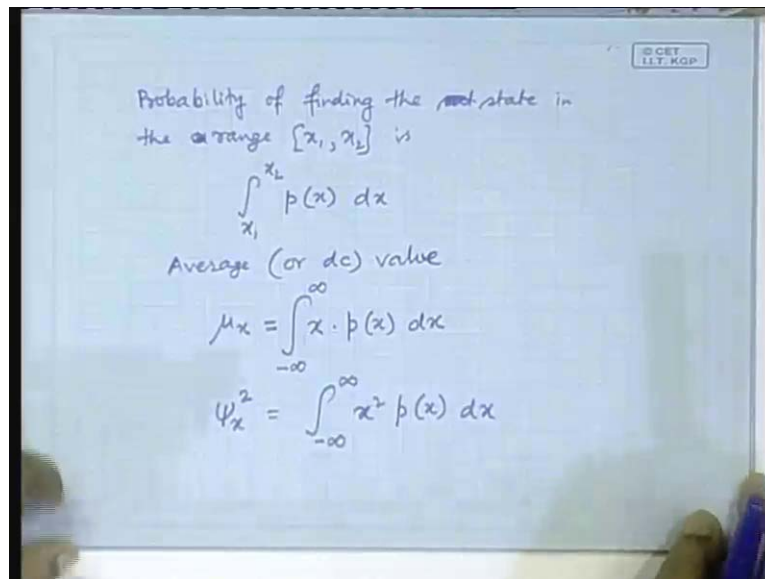 © CET
I.I.T. KGP
Probability of finding the state in
the range [x₁, x₂] is
∫_{x₁}^{x₂} p(x) dx
Average (or dc) value
μₓ = ∫_{-∞}^{∞} x · p(x) dx
ψₓ² = ∫_{-∞}^{∞} x² p(x) dx